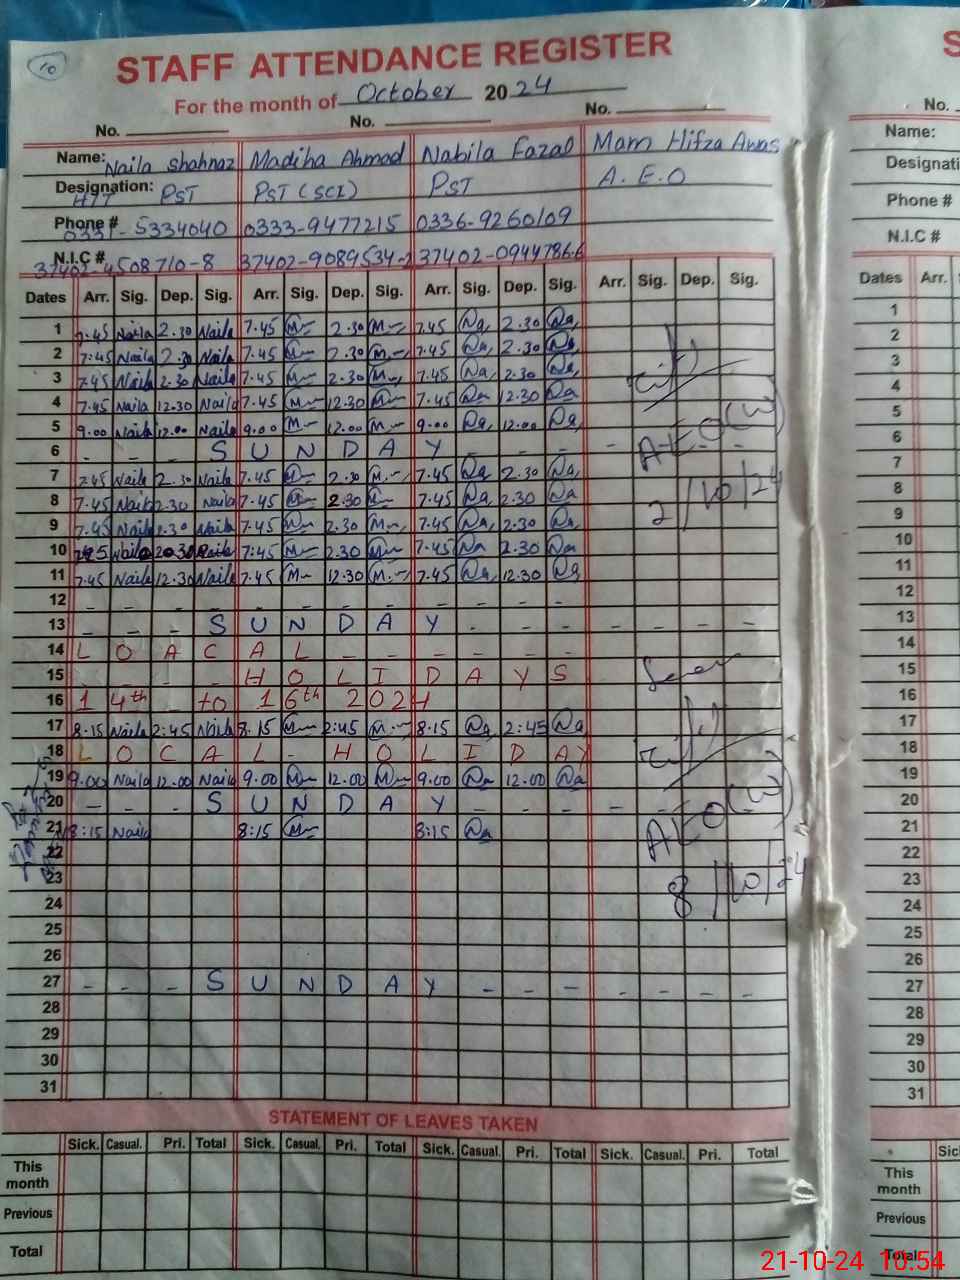 10
STAFF ATTENDANCE REGISTER
For the month of October 2024
No. No. No. No.
Name: Naila Shahnaz Madiha Ahmad Nabila Fazal Mam Hifza Awas Name:
Designation: HTT PST PST (SCI) PST A.E.O Designati
Phone # 0331-5334040 0333-9477215 0336-9260109 Phone #
N.I.C # 37402-4508710-8 37402-9089534-2 37402-0944786-6 N.I.C #
Dates Arr. Sig. Dep. Sig. Arr. Sig. Dep. Sig. Arr. Sig. Dep. Sig. Arr. Sig. Dep. Sig. Dates Arr.
1 7.45 Naila 2.30 Naila 7.45 M 2.30 M 7.45 Na 2.30 Na 1
2 7:45 Naila 2.30 Naila 7.45 M 2.30 M 7.45 Na 2.30 Na 2
3 7.45 Naila 2.30 Naila 7.45 M 2.30 M 7.45 Na 2.30 Na 3
4 7.45 Naila 12.30 Naila 7.45 M 12.30 M 7.45 Na 12.30 Na 4
5 9.00 Naila 12.00 Naila 9.00 M 12.00 M 9.00 Na 12.00 Na 5
6 - - - S U N D A Y - - - - - - - 6
AEO(W)
7 7.45 Naila 2.30 Naila 7.45 M 2.30 M 7.45 Na 2.30 Na 7
8 7.45 Naila 2.30 Naila 7.45 M 2.30 M 7.45 Na 2.30 Na 8
2/10/24
9 7.45 Naila 2.30 Naila 7.45 M 2.30 M 7.45 Na 2.30 Na 9
10 7.45 Naila 2.30 Naila 7:45 M 2.30 M 7.45 Na 2.30 Na 10
11 7.45 Naila 12.30 Naila 7.45 M 12.30 M 7.45 Na 12.30 Na 11
12 - - - - - - - - - - - - 12
13 - - - S U N D A Y - - - - - - - 13
14 L O A C A L - - - - - - 14
15 - - - - H O L I D A Y S 15
16 14th - to 16th 2024 16
17 8.15 Naila 2:45 Naila 8.15 M 2:45 M 8.15 Na 2:45 Na 17
18 L O C A L - H O L I D A Y 18
19 9.00 Naila 12.00 Naila 9.00 M 12.00 M 9.00 Na 12.00 Na 19
20 - - - S U N D A Y - - - - - - - 20
21 8:15 Naila 8:15 M 8:15 Na 21
AEO(W)
22 22
23 23
8/10/24
24 24
25 25
26 26
27 - - - S U N D A Y - - - - - - - 27
28 28
29 29
30 30
31 31
STATEMENT OF LEAVES TAKEN
Sick. Casual. Pri. Total Sick. Casual. Pri. Total Sick. Casual. Pri. Total Sick. Casual. Pri. Total Sic
This month This month
Previous Previous
Total Total
21-10-24 10:54